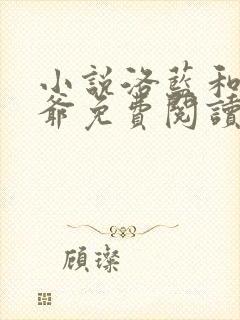 小說洛藍和
爺免費閱讀
顧璨